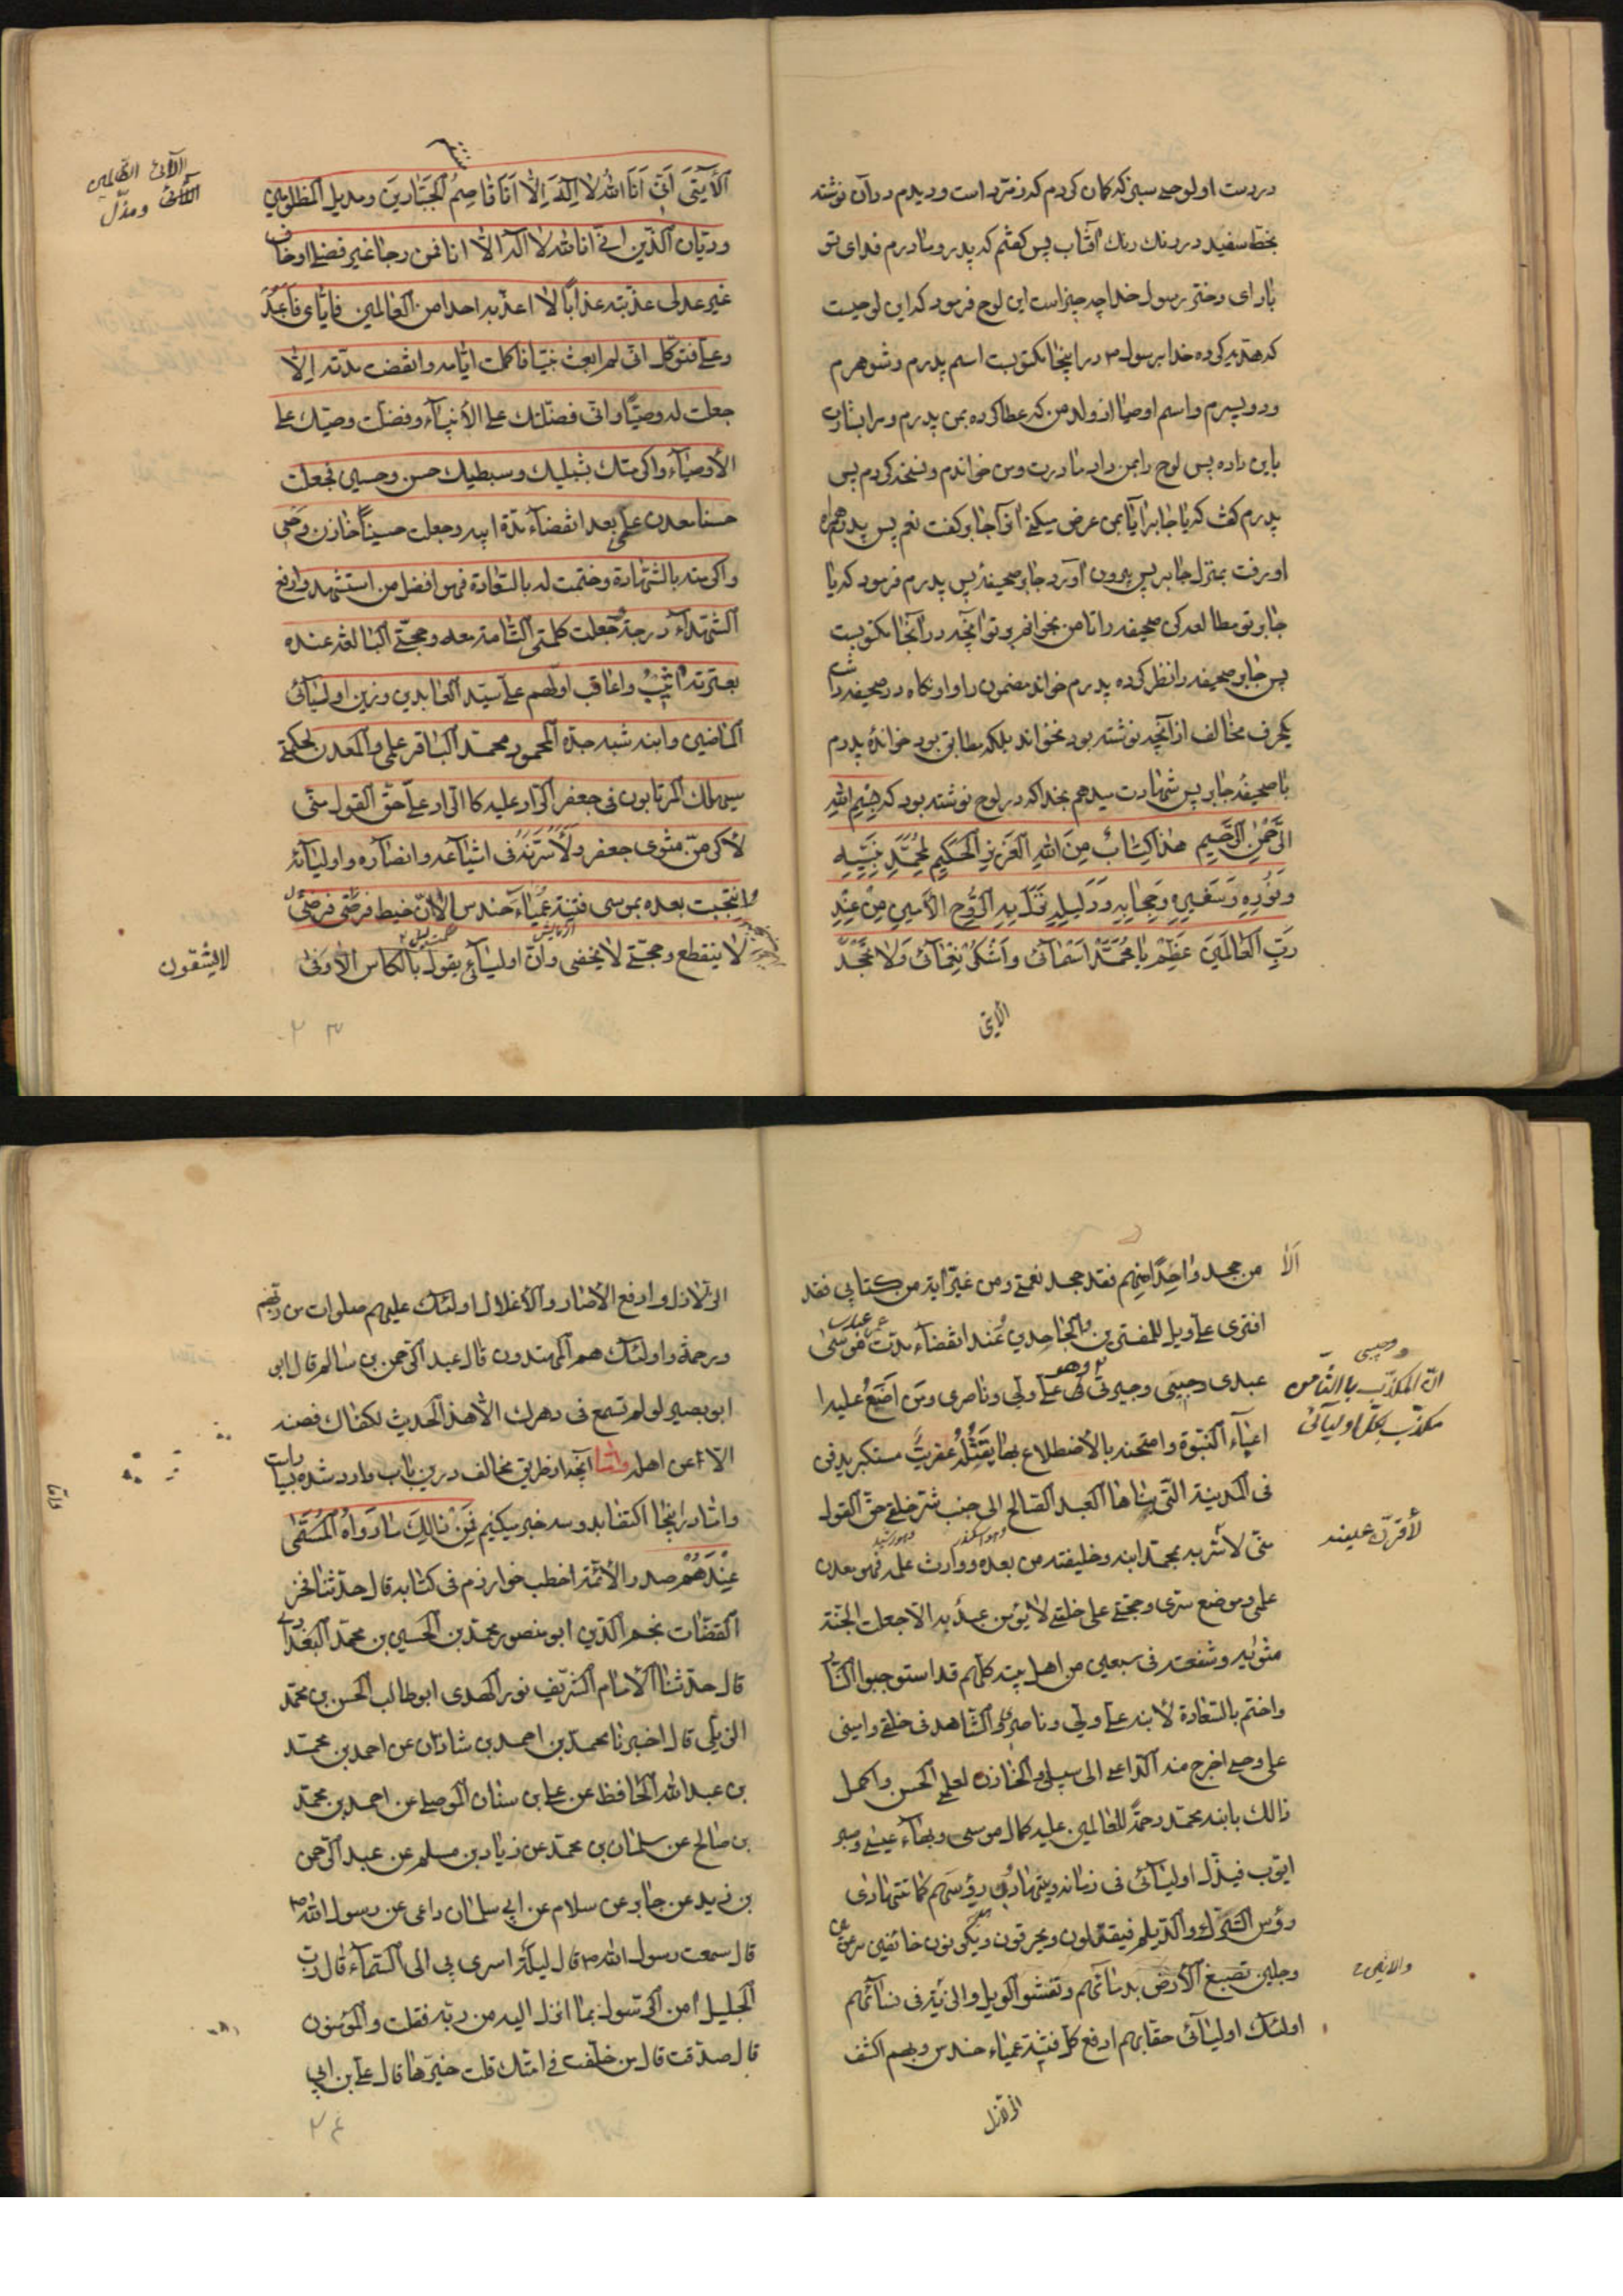 در دست او لوحی سبز که گمان کردم که زمرد است و دیدم در آن نوشته
بخط سفید در رنگ آفتاب پس گفتم که پدر و مادرم فدای تو
باد ای دختر رسول خدا چه چیز است این لوح فرمود که این لوحیست
که هدیه کرده خدا برسول ص در اینجا مکتوبست اسم پدرم و شوهرم
و دو پسرم و اسم اوصیا از ولد من که عطا کرده بمن پدرم و مرا بشارت
باین داده پس لوح را بمن داد مادرت و من خواندم و نسخه کردم پس
پدرم گفت که یا جابر آیا بمن عرض میکنی آنرا جابر گفت نعم پس پدرم همراه
او رفت بمنزل جابر پس بیرون آورد جابر صحیفه پس پدرم فرمود که یا
جابر تو مطالعه کن صحیفه را تا من بخوانم بر تو آنچه در آنجا مکتوبست
پس جابر صحیفه را نظر کرده پدرم خواند مضمون را و او نگاه در صحیفه داشت
یکحرف مخالف از آنچه نوشته بود نخواند بلکه مطابق بود خوانده پدرم
با صحیفه جابر پس شهادت میدهم بخدا که در لوح نوشته بود که بِسْمِ اللهِ
الرَّحْمٰنِ الرَّحِیمِ هٰذَا کِتَابٌ مِنَ اللهِ الْعَزِیزِ الْحَکِیمِ لِمُحَمَّدٍ نَبِیِّهِ
وَنُورِهِ وَسَفِیرِهِ وَحِجَابِهِ وَدَلِیلِهِ نَزَلَ بِهِ الرُّوحُ الْاَمِینُ مِنْ عِنْدِ
رَبِّ الْعَالَمِینَ عَظِّمْ یَا مُحَمَّدُ اَسْمَائِی وَاشْکُرْ نَعْمَائِی وَلَا تَجْحَدْ
الآئی
الآئی اَنِّی اَنَا اللهُ لَا اِلٰهَ اِلَّا اَنَا قَاصِمُ الْجَبَّارِینَ ومدیل المظلومین
ودیان الدین انی انا الله لا اله الا انا فمن رجا غیر فضلی او خاف
غیر عدلی عذبته عذاباً لا اعذبه احدا من العالمین فایای فاعبد
وعلی فتوکل انی لم ابعث نبیا فاکملت ایامه وانقضت مدته اِلّا
جعلت له وصیا وانی فضلتک علی الأنبیاء وفضلت وصیک علی
الأوصیاء واکرمتک بشبلیک وسبطیک حسن وحسین فجعلت
حسنا معدن علمی بعد انقضاء مدة ابیه وجعلت حسیناً خازن وحیی
واکرمته بالشهادة وختمت له بالسعادة فهو افضل من استشهد وارفع
الشهداء درجة جعلت کلمتی التامة معه وحجتی البالغة عنده
بعترته اُثیبُ واعاقب اولهم علی سید العابدین وزین اولیائی
الماضین وابنه شبه جده المحمود محمد الباقر علمی والمعدن لحکمتی
سیهلک المرتابون فی جعفر الراد علیه کالراد علی حق القول منی
لأکرمن مثوی جعفر ولَأَسُرَّنَّهُ فی اشیاعه وانصاره واولیائه
وانتجبت بعده بموسی فتنة عمیاء حندس الا ان خیط فرضی
لا ینقطع وحجتی لا یخفی وان اولیائی بالکاس الاوفی
لا یشقون
الا من جحد واحِدًا مِنهم فقد جحد نعمتی ومن غیر ایة من کتابی فقد
افتری علی ویل للمفترین والجاحدین عند انقضاء مدت موسی
عبدی وحبیبی وخیرتی فی علی ولیی وناصری ومن اَضَعُ علیه
وحبیبی
ان المکذب بالثامن
مکذب بکل اولیائی
اعباء النبوة وامتحنه بالاضطلاع بها یَقْتُلُهُ عِفریتٌ مستکبر یدفن
فی المدینة التی بناها العبد الصالح الی جنب شر خلقی حق القول
منی لأسرنه بمحمد ابنه وخلیفته من بعده ووارث علمه فهو معدن
لأقرن عینه
علمی وموضع سری وحجتی علی خلقی لا یؤمن عبد به الا جعلت الجنة
مثویه وشفعته فی سبعین من اهل بیته کلهم قد استوجبوا النار
واختم بالسعادة لأبنه علی ولیی وناصری والشاهد فی خلقی وامینی
علی وحیی اخرج منه الداعی الی سبیلی والخازن لعلمی الحسن واکمل
ذالک بابنه محمد رحمة للعالمین علیه کمال موسی وبهاء عیسی وصبر
ایوب فیذل اولیائی فی زمانه ویتهادون رؤسهم کما تتهادی
رؤس الترک والدیلم فیقتلون ویحرقون ویکونون خائفین مرعوبین
وجلین تصبغ الأرض بدمائهم وتفشو الویل والرنة فی نسائهم
اولئک اولیائی حقا بهم ادفع کل فتنة عمیاء حندس وبهم اکشف
الزلازل
الزلازل وادفع الأصار والأغلال اولئک علیهم صلوات من ربهم
ورحمة واولئک هم المهتدون قال عبد الرحمن بن سالم قال ابو
ابو بصیر لو لم تسمع فی دهرک الا هذا الحدیث لکفاک فصنه
الا عن اهله واما آنچه از طریق مخالف درین باب وارد شده بسیار است
واما در اینجا اکتفا بدو سه خبر میکنیم فَمِنْ ذَالِکَ مَا رَوَاهُ الْمُسَمّٰی
عِنْدَهُمْ صدر الأئمة اخطب خوارزم فی کتابه قال حدثنا فخر
القضات نجم الدین ابو منصور محمد بن الحسین بن محمد البغدادی
قال حدثنا الأمام الشریف نور الهدی ابو طالب الحسن بن محمد
الزینبی قال اخبرنا محمد بن احمد بن شاذان عن احمد بن محمد
بن عبد الله الحافظ عن علی بن سنان الموصلی عن احمد بن محمد
بن صالح عن سلمان بن محمد عن زیاد بن مسلم عن عبد الرحمن
بن زید عن جابر عن سلام عن ابی سلمان راعی عن رسول الله ص
قال سمعت رسول الله ص قال لیلة اسری بی الی السماء قال رب
الجلیل آمن الرسول بما انزل الیه من ربه فقلت والمؤمنون
قال صدقت قال من خلفت فی امتک قلت خیرها قال علی بن ابی